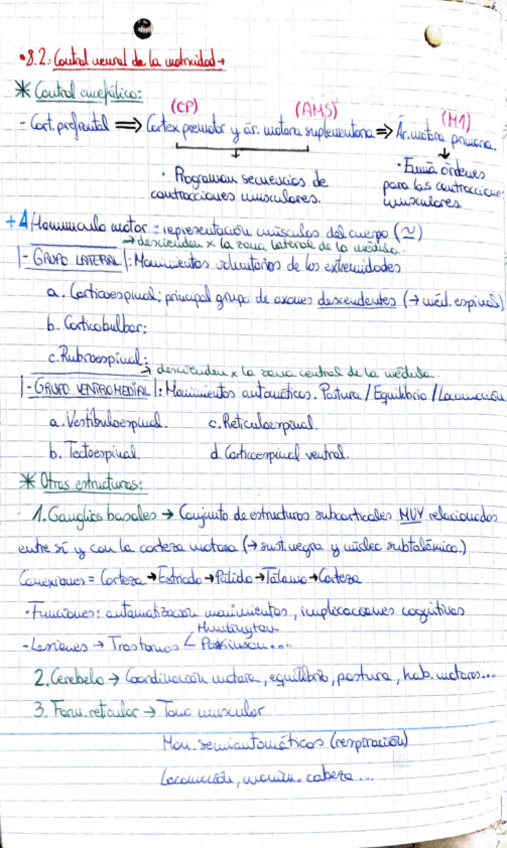 • 8.2: Control neural de la motricidad →
* Control encefálico:
(CP) (AMS) (M1)
- Cort. prefrontal ⇒ Cortex premotor y ár. motora suplementaria ⇒ Ár. motora primaria.
• Programan secuencias de contracciones musculares.
• Envía órdenes para las contracciones musculares.
+ Homúnculo motor = representación músculos del cuerpo (≃)
→ descienden x la zona lateral de la médula.
|- GRUPO LATERAL |: Movimientos voluntarios de las extremidades
a. Corticoespinal: principal grupo de axones descendentes (→ méd. espinal)
b. Corticobulbar:
c. Rubroespinal:
→ descienden x la zona central de la médula.
|- GRUPO VENTROMEDIAL |: Movimientos automáticos. Postura / Equilibrio / Locomoción
a. Vestibuloespinal. c. Reticuloespinal.
b. Tectoespinal. d. Corticoespinal ventral.
* Otras estructuras:
1. Ganglios basales → Conjunto de estructuras subcorticales MUY relacionados
entre sí y con la corteza motora (→ sust. negra y núcleo subtalámico.)
Conexiones = Corteza → Estriado → Pálido → Tálamo → Corteza
• Funciones: automatización movimientos, implicaciones cognitivas
- Lesiones → Trastornos < Huntington
Parkinson...
2. Cerebelo → Coordinación motora, equilibrio, postura, hab. motoras...
3. Form. reticular → Tono muscular
Mov. semiautomáticos (respiración)
Locomoción, movim. cabeza...